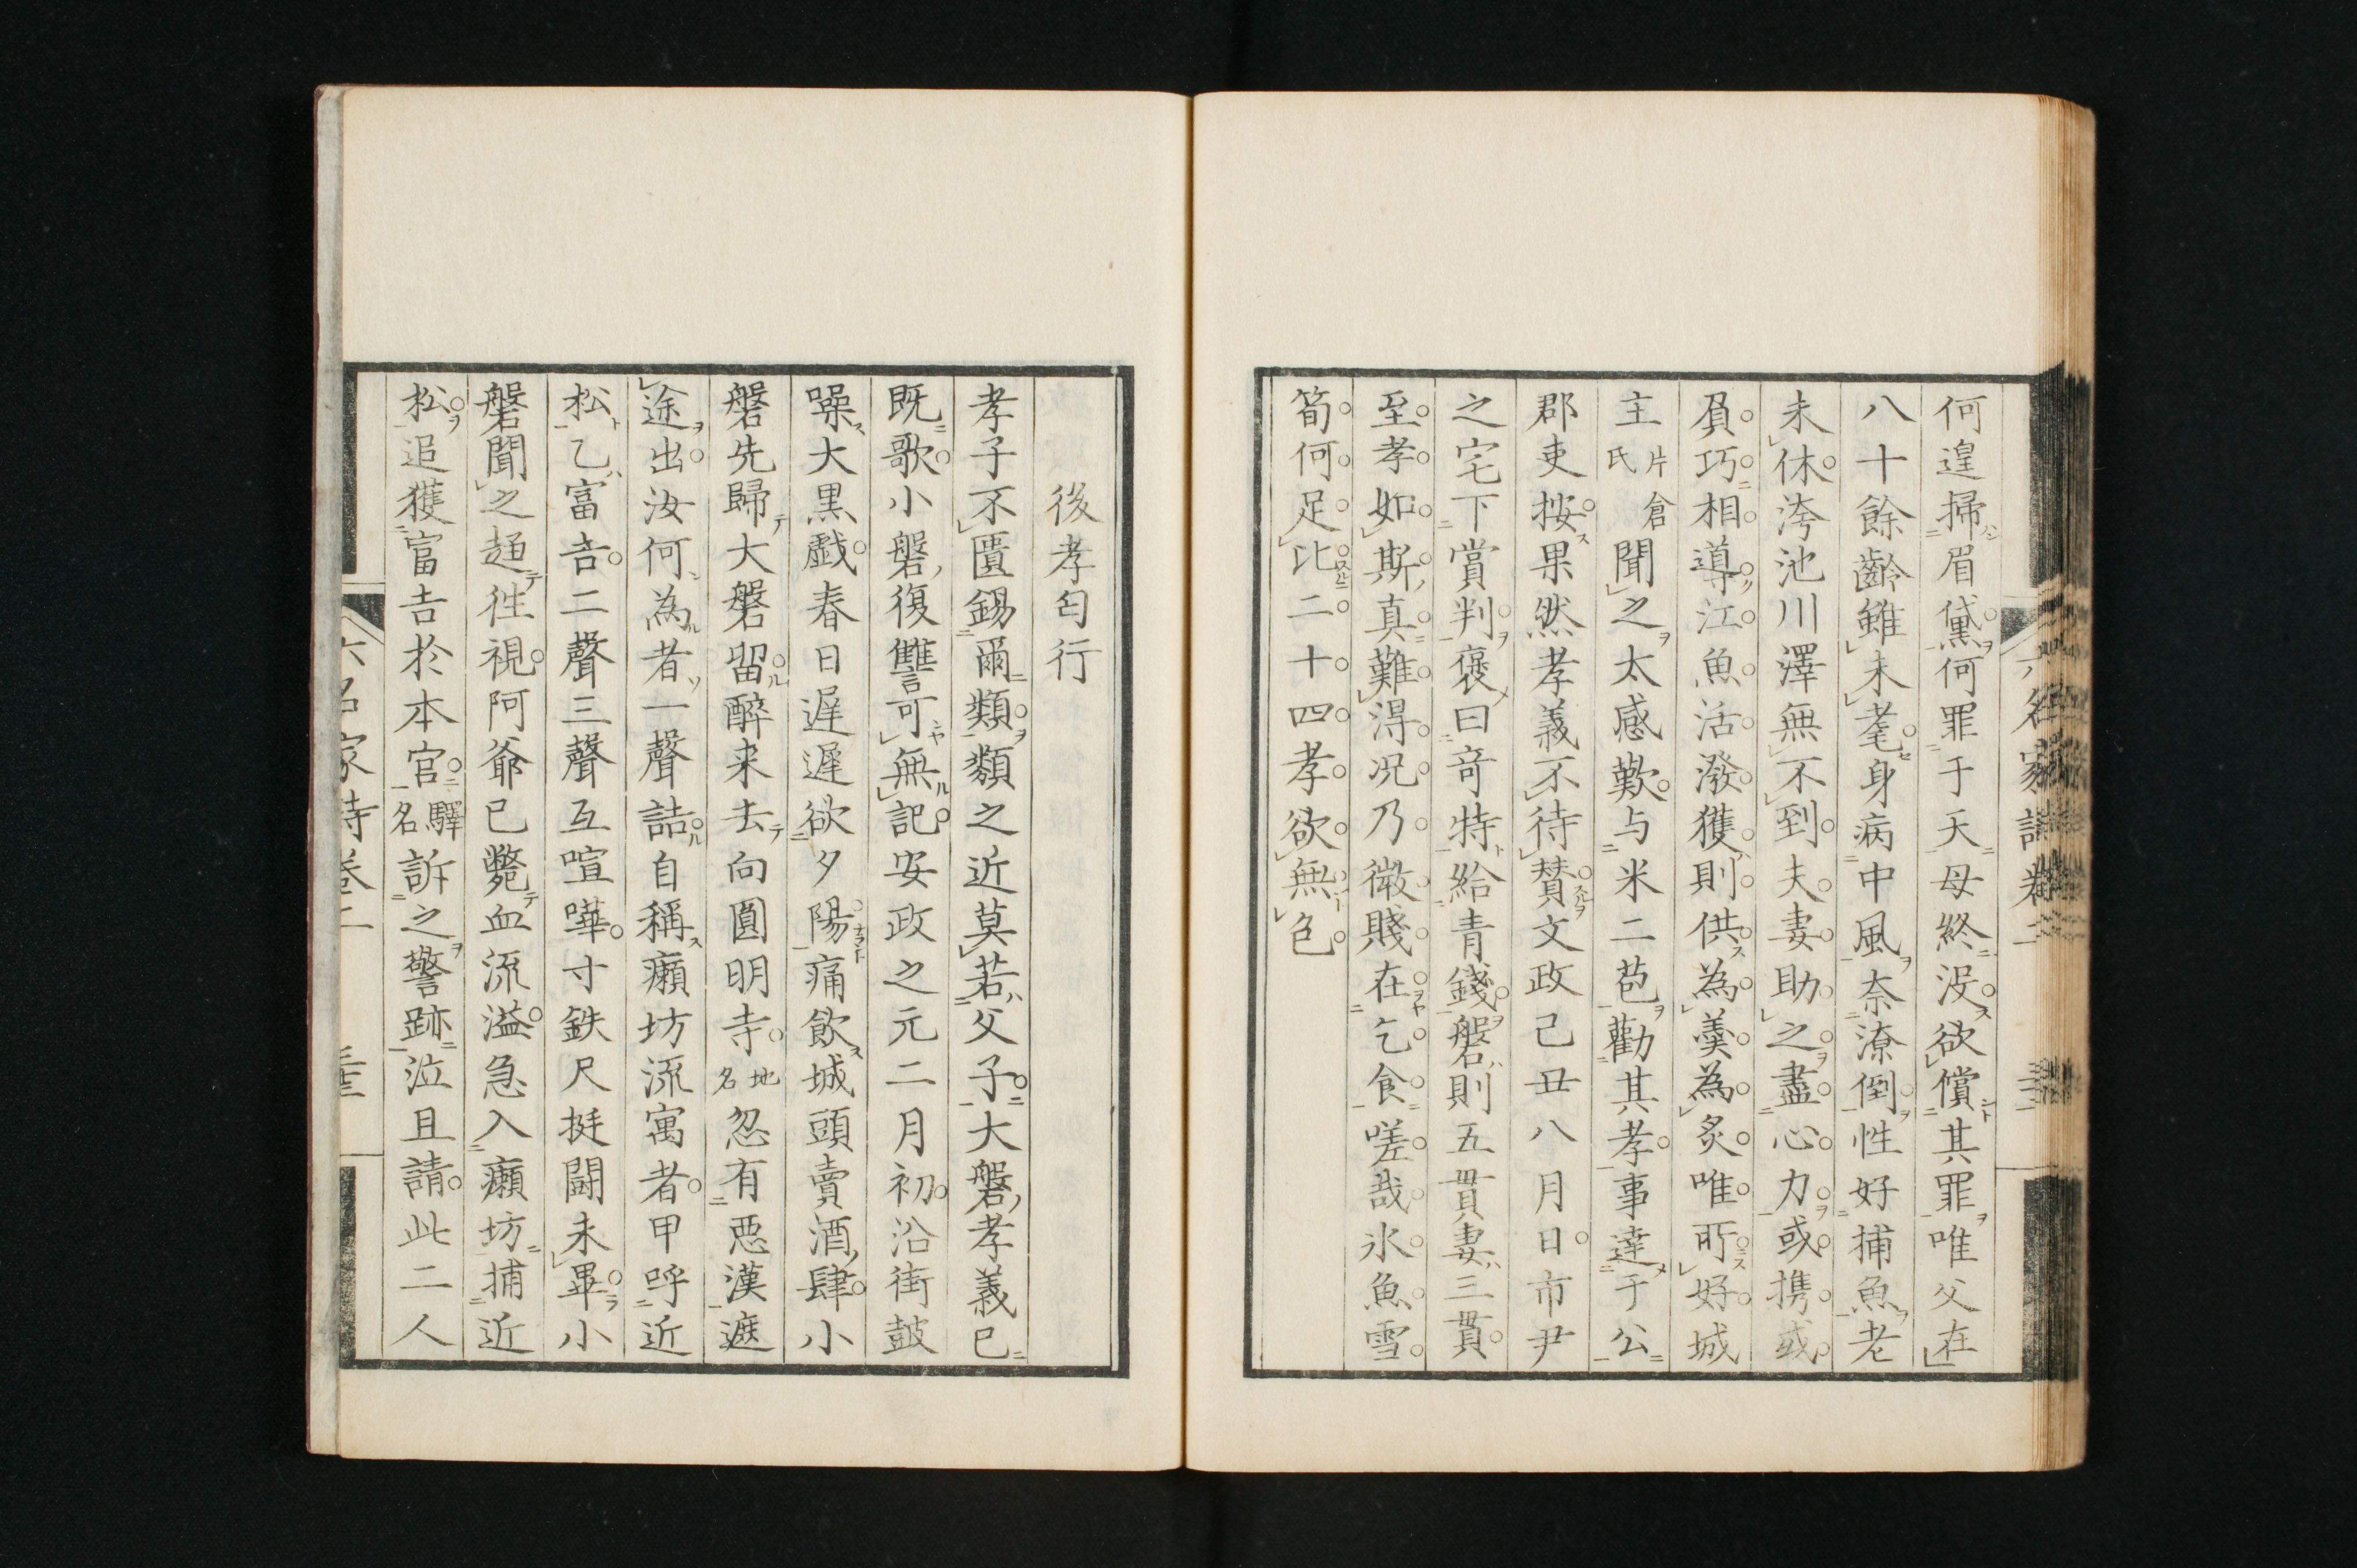 何遑掃眉黛何罪于天母終没欲償其罪唯父在
八十餘齡雖未耄身病中風奈潦倒性好捕魚老
未休洿池川澤無不到夫妻助之盡心力或携或
負巧相導江魚活潑獲則供為羹為炙唯所好城
主片倉氏聞之太感歎与米二苞勸其孝事達于公
郡吏按果然孝義不待賛文政己丑八月日市尹
之宅下賞判褒曰奇特給青錢磐則五貫妻三貫
至孝如斯真難得况乃微賤在乞食嗟哉氷魚雪
筍何足比二十四孝欲無色
後孝匄行
孝子不匱錫爾類類之近莫若父子大磐孝義已
既歌小磐復讐可無記安政之元二月初沿街鼓
噪大黒戯春日遲遲欲夕陽痛飲城頭賣酒肆小
磐先歸大磐留醉来去向圓明寺地名忽有悪漢遮
途出汝何為者一聲詰自稱癩坊流寓者甲呼近
松乙富吉二聲三聲互喧嘩寸鉄尺挺闘未畢小
磐聞之趄徃視阿爺已斃血流溢急入癩坊捕近
松追獲富吉於本官驛名訴之警跡泣且請此二人
六名家詩巻二